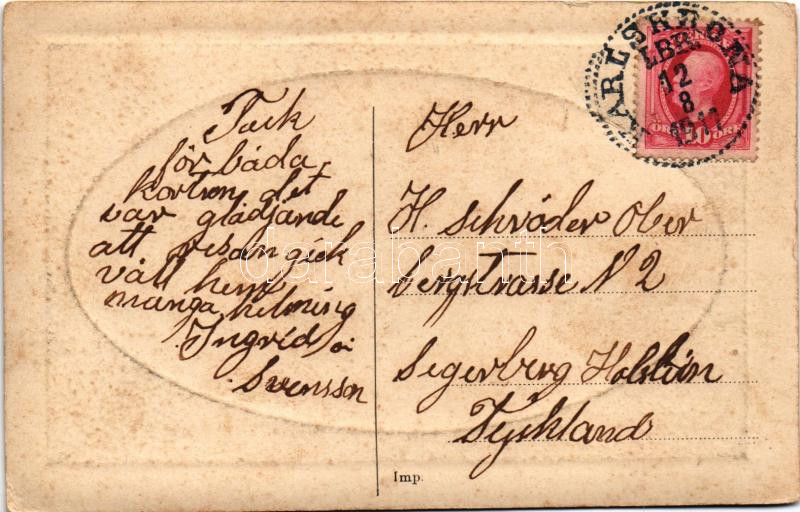 Tack
för båda
korten det
var glädjande
att resan gick
väll hem
många helsning
Ingrid
Swensson
Herr
H. Schröder Ober
bergstrasse N 2
Segerberg Holstein
Tyskland
Imp.
KARLSKRONA
LBR.
12
8
1911
ÖRE
ÖRE
darabanth